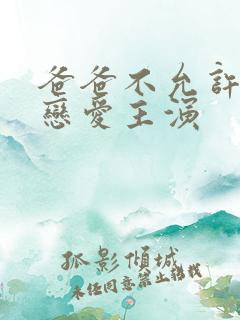 爸爸不允許
戀愛主演
孤影傾城
未經同意禁止轉載